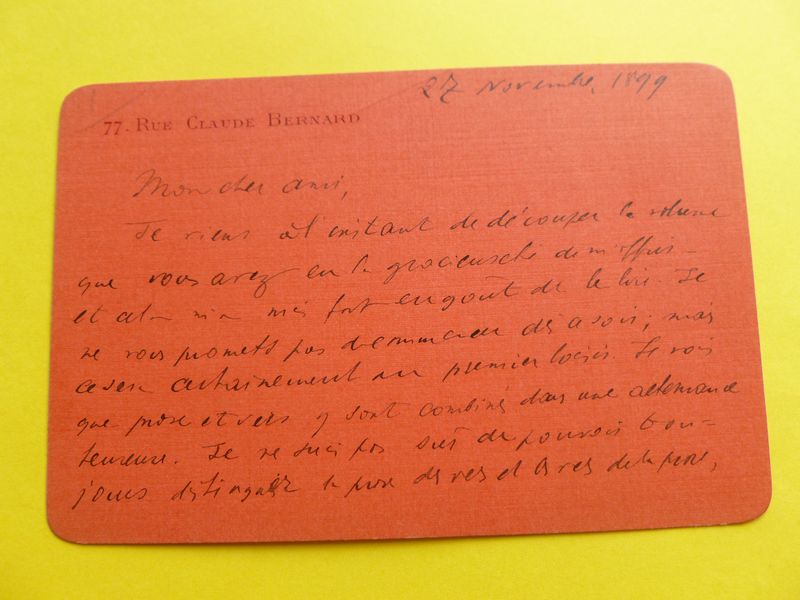 27 Novembre, 1899
77. Rue Claude Bernard
Mon cher ami,
Je viens à l'instant de découper le volume
que vous avez eu la gracieuseté de m'offrir
et cela m'a mis fort en goût de le lire. Je
ne vous promets pas de commencer dès ce soir; mais
ce sera certainement au premier loisir. Je vois
que prose et vers y sont combinés dans une alternance
heureuse. Je ne suis pas sûr de pouvoir tou-
jours distinguer la prose des vers et les vers de la prose,